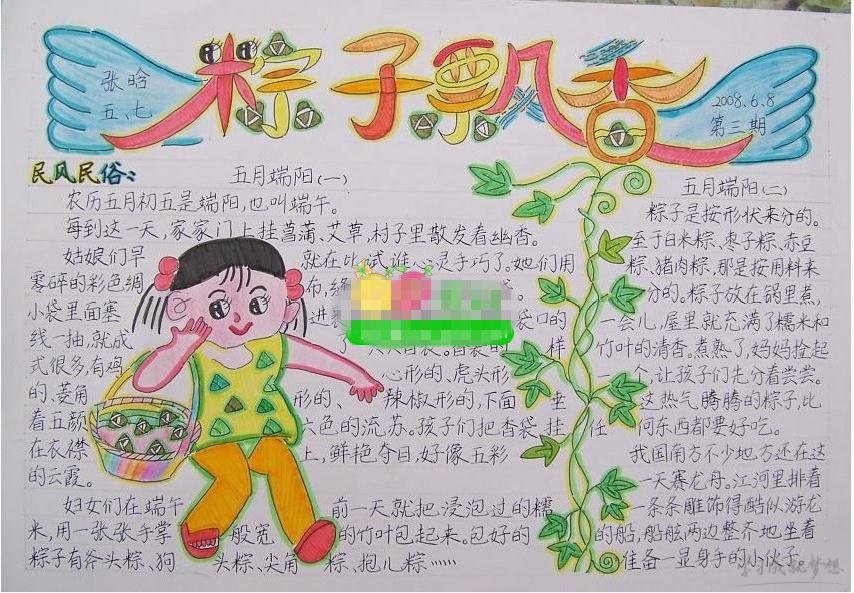 粽子飘香
张晗
五、七
2008.6.8
第三期
民风民俗:
五月端阳(一)
农历五月初五是端阳,也叫端午。
每到这一天,家家门上挂菖蒲、艾草,村子里散发着幽香。
姑娘们早 就在比试谁心灵手巧了。她们用
零碎的彩色绸 布,缝
小袋里面塞 进 香 袋口的
线一抽,就成 了 香袋的 样
式很多,有鸡 心形的、虎头形
的、菱角 形的、辣椒形的,下面 垂
着五颜 六色的流苏。孩子们把香袋 挂
在衣襟 上,鲜艳夺目,好像五彩
的云霞。
妇女们在端午 前一天就把浸泡过的糯
米,用一张张手掌 般宽 的竹叶包起来。包好的
粽子有斧头粽、狗 头粽、尖角 粽、抱儿粽……
五月端阳(二)
粽子是按形状来分的。
至于白米粽、枣子粽、赤豆
粽、猪肉粽,那是按用料来
分的。粽子放在锅里煮,
一会儿,屋里就充满了糯米和
竹叶的清香。煮熟了,妈妈捡起
一个让孩子们先分着尝尝。
这热气腾腾的粽子,比
任何东西都要好吃。
我国南方不少地方还在这
一天赛龙舟。江河里排着
一条条雕饰得酷似游龙
的船,船舷两边整齐地坐着
准备一显身手的小伙子
学习成就梦想